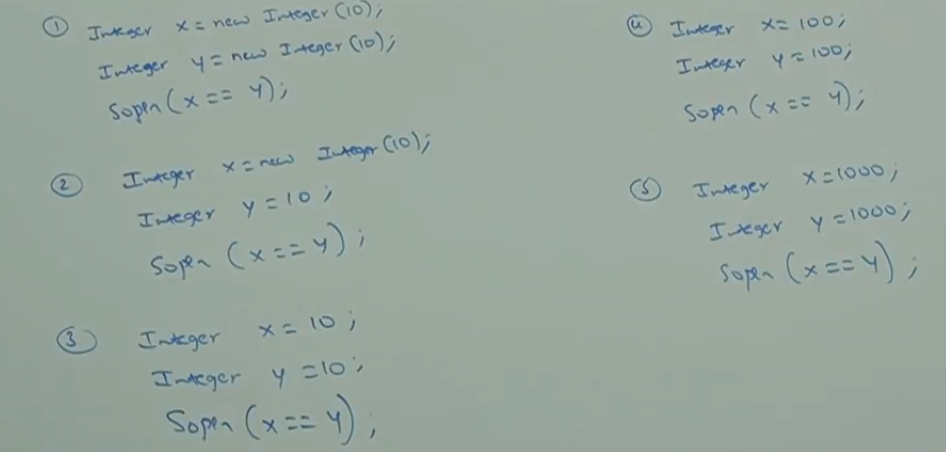 ① Integer x = new Integer(10);
Integer y = new Integer(10);
Sopln(x == y);
② Integer x = new Integer(10);
Integer y = 10;
Sopln (x == y);
③ Integer x = 10;
Integer y = 10;
Sopln (x == y);
④ Integer x = 100;
Integer y = 100;
Sopln (x == y);
⑤ Integer x = 1000;
Integer y = 1000;
Sopln (x == y);